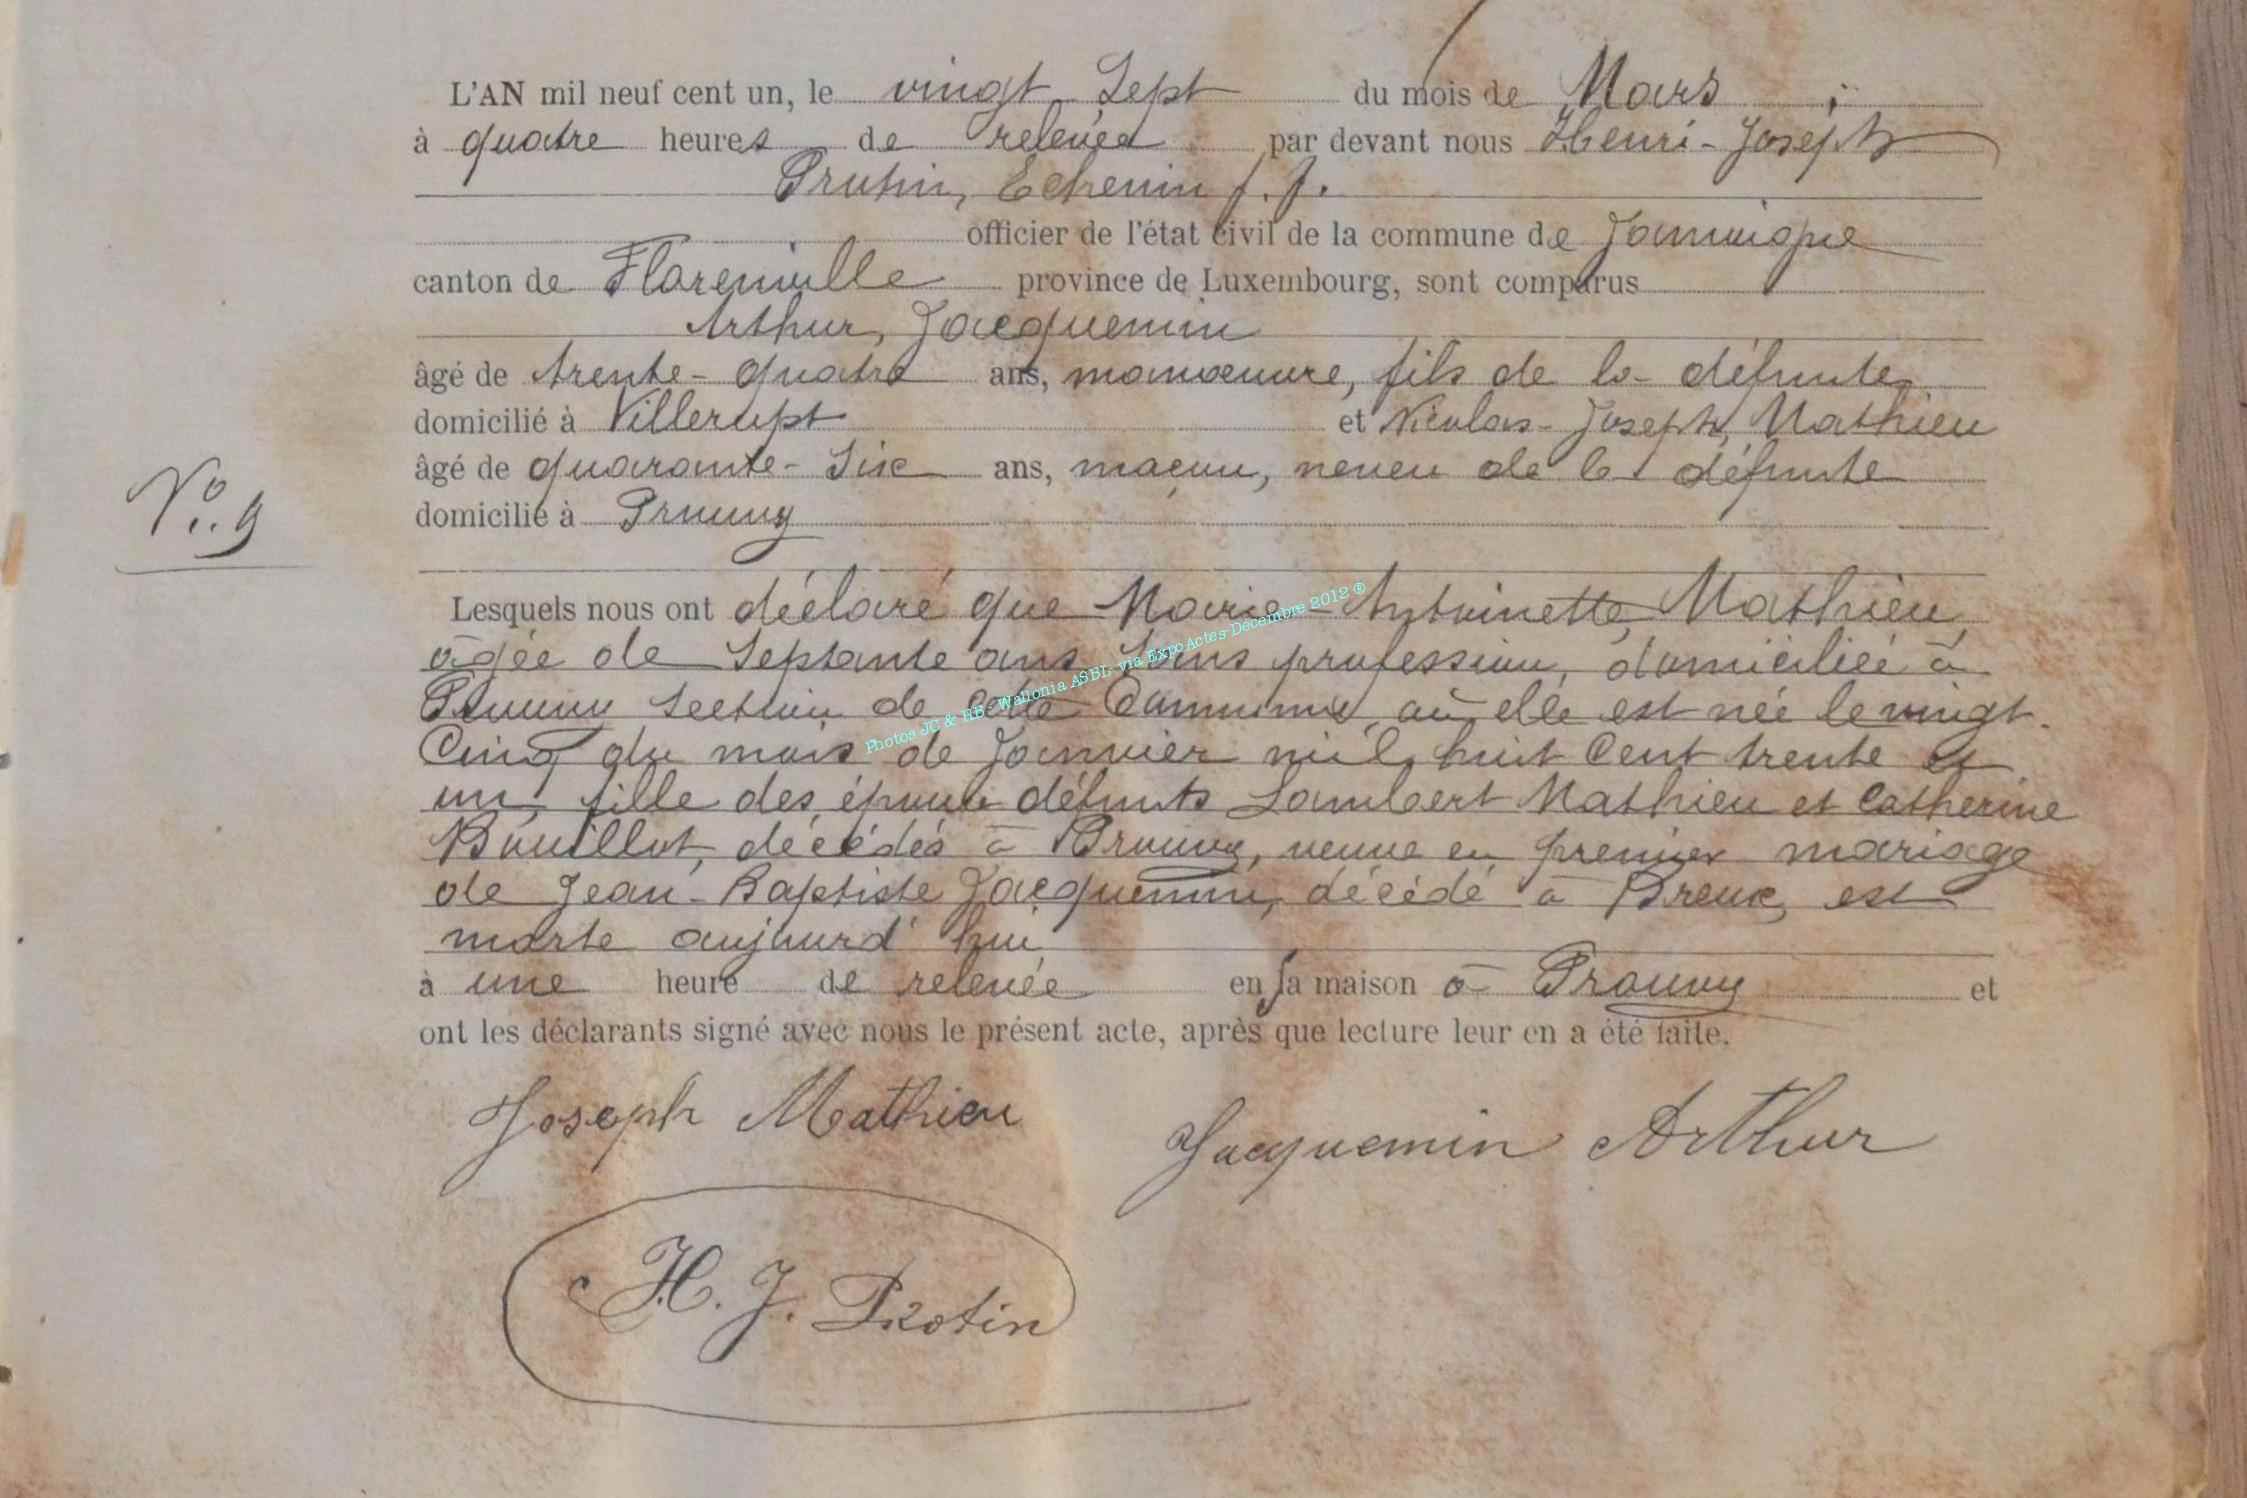 L'AN mil neuf cent un, le vingt Sept du mois de Mars
à quatre heures de relevée par devant nous Henri-Joseph
Protin, Echevin f. f.
officier de l'état civil de la commune de Jamoigne
canton de Florenville province de Luxembourg, sont comparus
Arthur, Jacquemin
âgé de trente-quatre ans, manœuvre, fils de la défunte
domicilié à Villerupt et Nicolas-Joseph, Mathieu
âgé de quarante-Six ans, maçon, neveu de la défunte
domicilié à Prouvy
No. 9
Lesquels nous ont déclaré que Marie-Antoinette, Mathieu,
âgée de Septante ans Sans profession, domiciliée à
Prouvy Section de cette Commune où elle est née le vingt-
Cinq du mois de Janvier mil huit Cent trente et
un, fille des époux défunts Lambert Mathieu et Catherine
Bouillot, décédés à Prouvy, veuve en premier mariage
de Jean-Baptiste Jacquemin, décédé à Breux, est
morte aujourd'hui
à une heure de relevée en sa maison à Prouvy et
ont les déclarants signé avec nous le présent acte, après que lecture leur en a été faite.
Joseph Mathieu
Jacquemin Arthur
H. J. Protin
Photos JC & HB - Wallonia ASBL via ExpoActes-Décembre 2012 ®